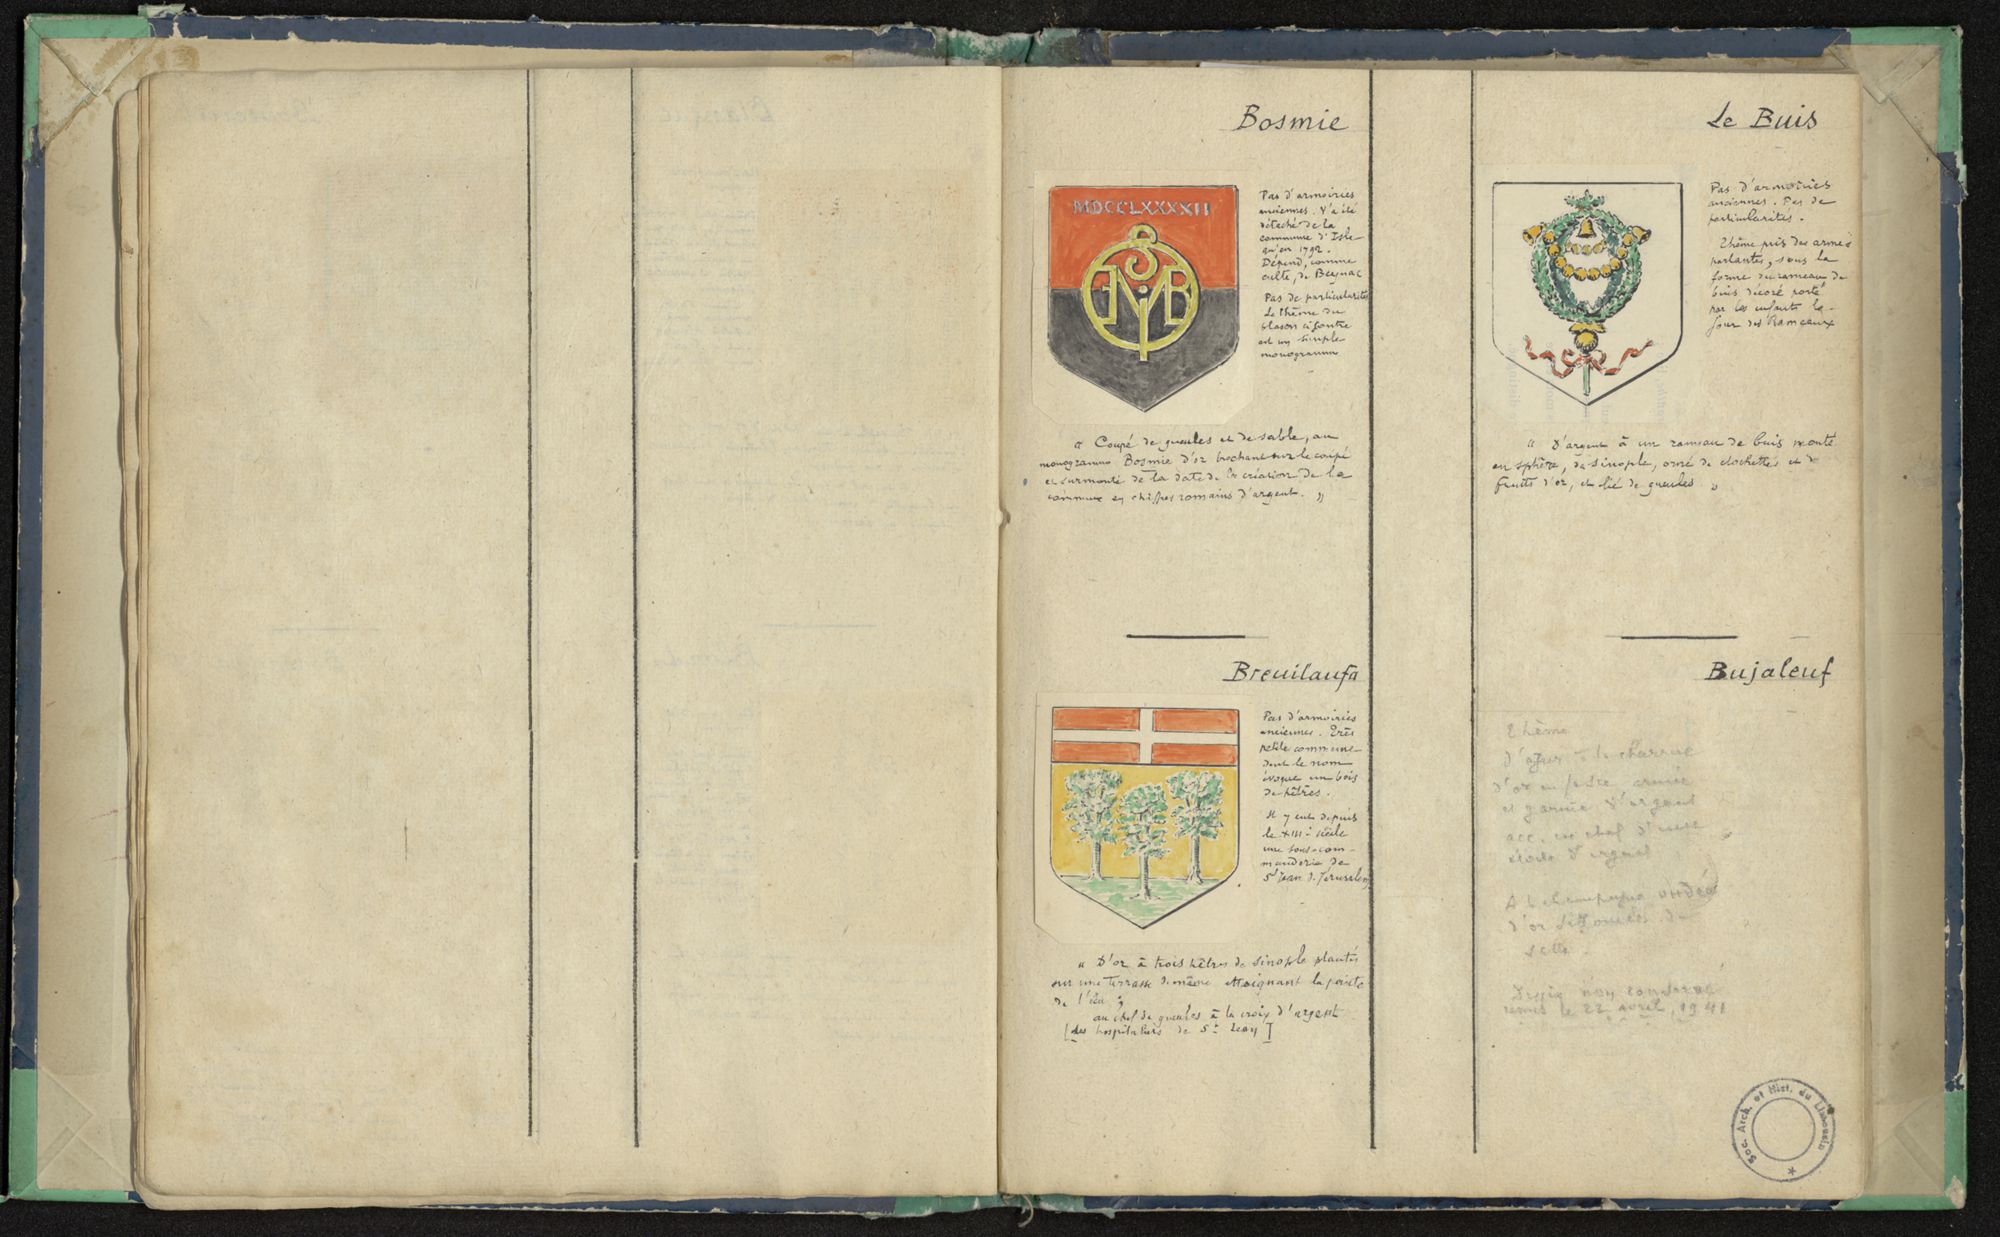 Bosmie
MDCCLXXXXII
Pas d'armoiries
anciennes. N'a été
détaché de la
commune d'Isle
qu'en 1792.
Dépend, comme
culte, de Beynac
Pas de particularités
Le thème du
blason ci-contre
est un simple
monogramme
SMYB
" Coupé de gueules et de sable, au
monogramme Bosmie d'or brochant sur le coupé
et surmonté de la date de la création de la
commune en chiffres romains d'argent. "
Le Buis
Pas d'armoiries
anciennes. Pas de
particularités.
Thème pris des armes
parlantes, sous la
forme du rameau de
buis décoré porté
par les enfants le
jour des Rameaux
" D'argent à un rameau de buis monté
en sphère, de sinople, orné de clochettes et de
fruits d'or, et lié de gueules. "
Breuilaufa
Pas d'armoiries
anciennes. Très
petite commune
dont le nom
évoque un bois
de hêtres.
Il y eut depuis
le XIIIe siècle
une sous-com-
manderie de
St Jean d. Jérusalem
" D'or à trois hêtres de sinople plantés
sur une terrasse de même atteignant la pointe
de l'écu ;
au chef de gueules à la croix d'argent
[des hospitaliers de St Jean]
Bujaleuf
Thème
d'azur à la charrue
d'or
et garnie d'argent
acc. en chef d'une
étoile d'argent
A la champagne
d'or
Dessin non conservé
remis le 22 avril 1941
Soc. Arch. et Hist. du Limousin